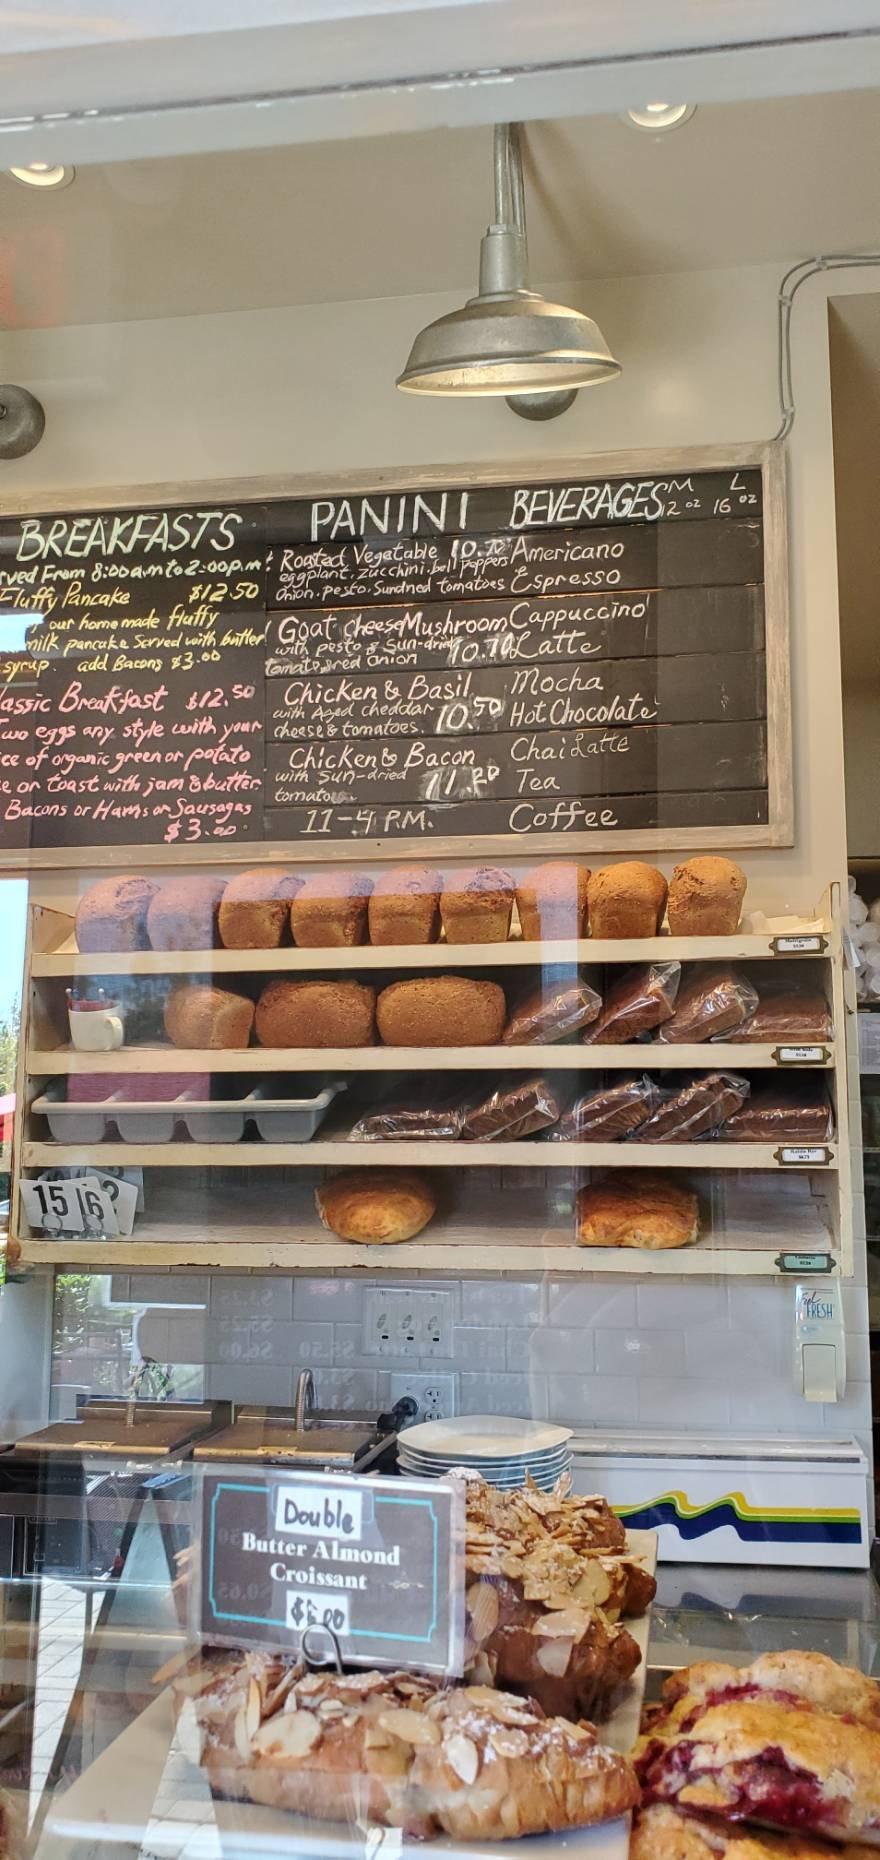 BREAKFASTS
rved From 8:00am to 2:00p.m.
Fluffy Pancake $12.50
our homemade fluffy
milk pancake Served with butter
syrup. add Bacons $3.00
assic Breakfast $12.50
Two eggs any style with your
ice of organic green or potato
e or toast with jam & butter.
Bacons or Hams or Sausagas
$3.00
PANINI
Roasted Vegatable 10.70
eggplant, zucchini, bell peppers
onion, pesto, Sundried tomatoes
Goat cheese Mushroom
with pesto & Sun-dried
tomato, red onion 10.70
Chicken & Basil
with Aged cheddar
cheese & tomatoes. 10.50
Chicken & Bacon
with Sun-dried
tomato
11-4 P.M.
BEVERAGES M L
12 oz 16 oz
Americano
Espresso
Cappuccino
Latte
Mocha
Hot Chocolate
Chai Latte
Tea
Coffee
15 16
FRESH
Double
Butter Almond
Croissant